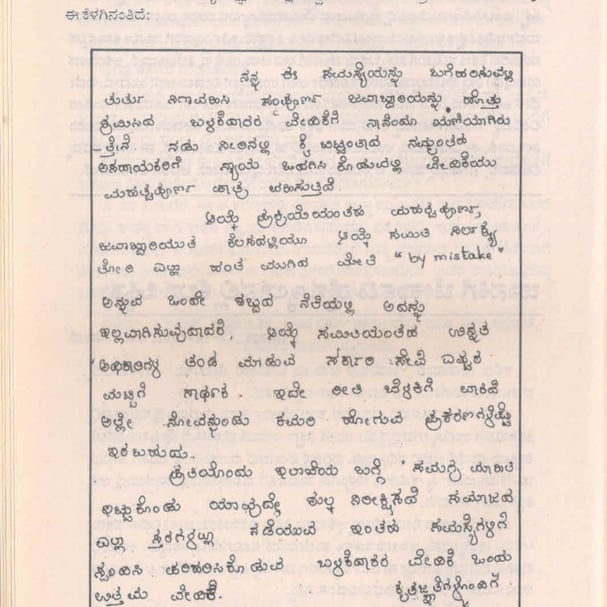 ಈ ಕೆಳಗಿನಂತಿದೆ:
ನನ್ನ ಈ ಸಮಸ್ಯೆಯನ್ನು ಬಗೆಹರಿಸುವಲ್ಲಿ
ತುರ್ತು ನಿಗಾವಹಿಸಿ ಸಂಪೂರ್ಣ ಜವಾಬ್ದಾರಿಯನ್ನು ಹೊತ್ತು
ಶ್ರಮಿಸಿದ ಬಳಕೆದಾರರ ವೇದಿಕೆಗೆ ನಾನೆಂದೂ ಋಣಿಯಾಗಿರು
-ತ್ತೇನೆ ನಡು ನೀರಿನಲ್ಲಿ ಕೈ ಬಿಟ್ಟಂತಾದ ನಮ್ಮಂತಹ
ಅಸಹಾಯಕರಿಗೆ ನ್ಯಾಯ ಒದಗಿಸಿ ಕೊಡುವಲ್ಲಿ ವೇದಿಕೆಯು
ಮಹತ್ವಪೂರ್ಣ ಪಾತ್ರ ವಹಿಸುತ್ತದೆ.
ಆಯ್ಕೆ ಪ್ರಕ್ರಿಯೆಯಂತಹ ಮಹತ್ವಪೂರ್ಣ,
ಜವಾಬ್ದಾರಿಯುತ ಕೆಲಸದಲ್ಲಿಯೂ ಆಯ್ಕೆ ಸಮಿತಿ ನಿರ್ಲಕ್ಷ್ಯ
ತೋರಿ ಎಲ್ಲಾ ಹಂತ ಮುಗಿದ ಮೇಲೆ "by mistake"
ಅನ್ನುವ ಒಂದೇ ಶಬ್ದದ ನೆಲೆಯಲ್ಲಿ ಅದನ್ನು
ಇಲ್ಲವಾಗಿಸುವುದಾದರೆ, ಆಯ್ಕೆ ಸಮಿತಿಯಂತಹ ಉನ್ನತ
ಅಧಿಕಾರಿಗಳ ತಂಡ ಮಾಡುವ ಸರ್ಕಾರಿ ಸೇವೆ ಎಷ್ಟರ
ಮಟ್ಟಿಗೆ ಸಾರ್ಥಕ. ಇದೇ ರೀತಿ ಬೆಳಕಿಗೆ ಬಾರದೆ
ಅಲ್ಲೇ ನೋವನ್ನುಂಡು ಕಮರಿ ಹೋಗುವ ಪ್ರಕರಣಗಳೆಷ್ಟೊ
ಇರಬಹುದು.
ಪ್ರತಿಯೊಂದು ಇಲಾಖೆಯ ಬಗ್ಗೆ ಸಮಗ್ರ ಮಾಹಿತಿ
ಇಟ್ಟುಕೊಂಡು ಯಾವುದೇ ಶುಲ್ಕ ನಿರೀಕ್ಷಿಸದೆ ಸಮಾಜದ
ಎಲ್ಲಾ ಸ್ತರಗಳಲ್ಲೂ ನಡೆಯುವ ಇಂತಹ ಸಮಸ್ಯೆಗಳಿಗೆ
ಸ್ಪಂದಿಸಿ ಪರಿಹರಿಸಿಕೊಡುವ ಬಳಕೆದಾರರ ವೇದಿಕೆ ಒಂದು
ಉತ್ತಮ ವೇದಿಕೆ. ಕೃತಜ್ಞತೆಗಳೊಂದಿಗೆ